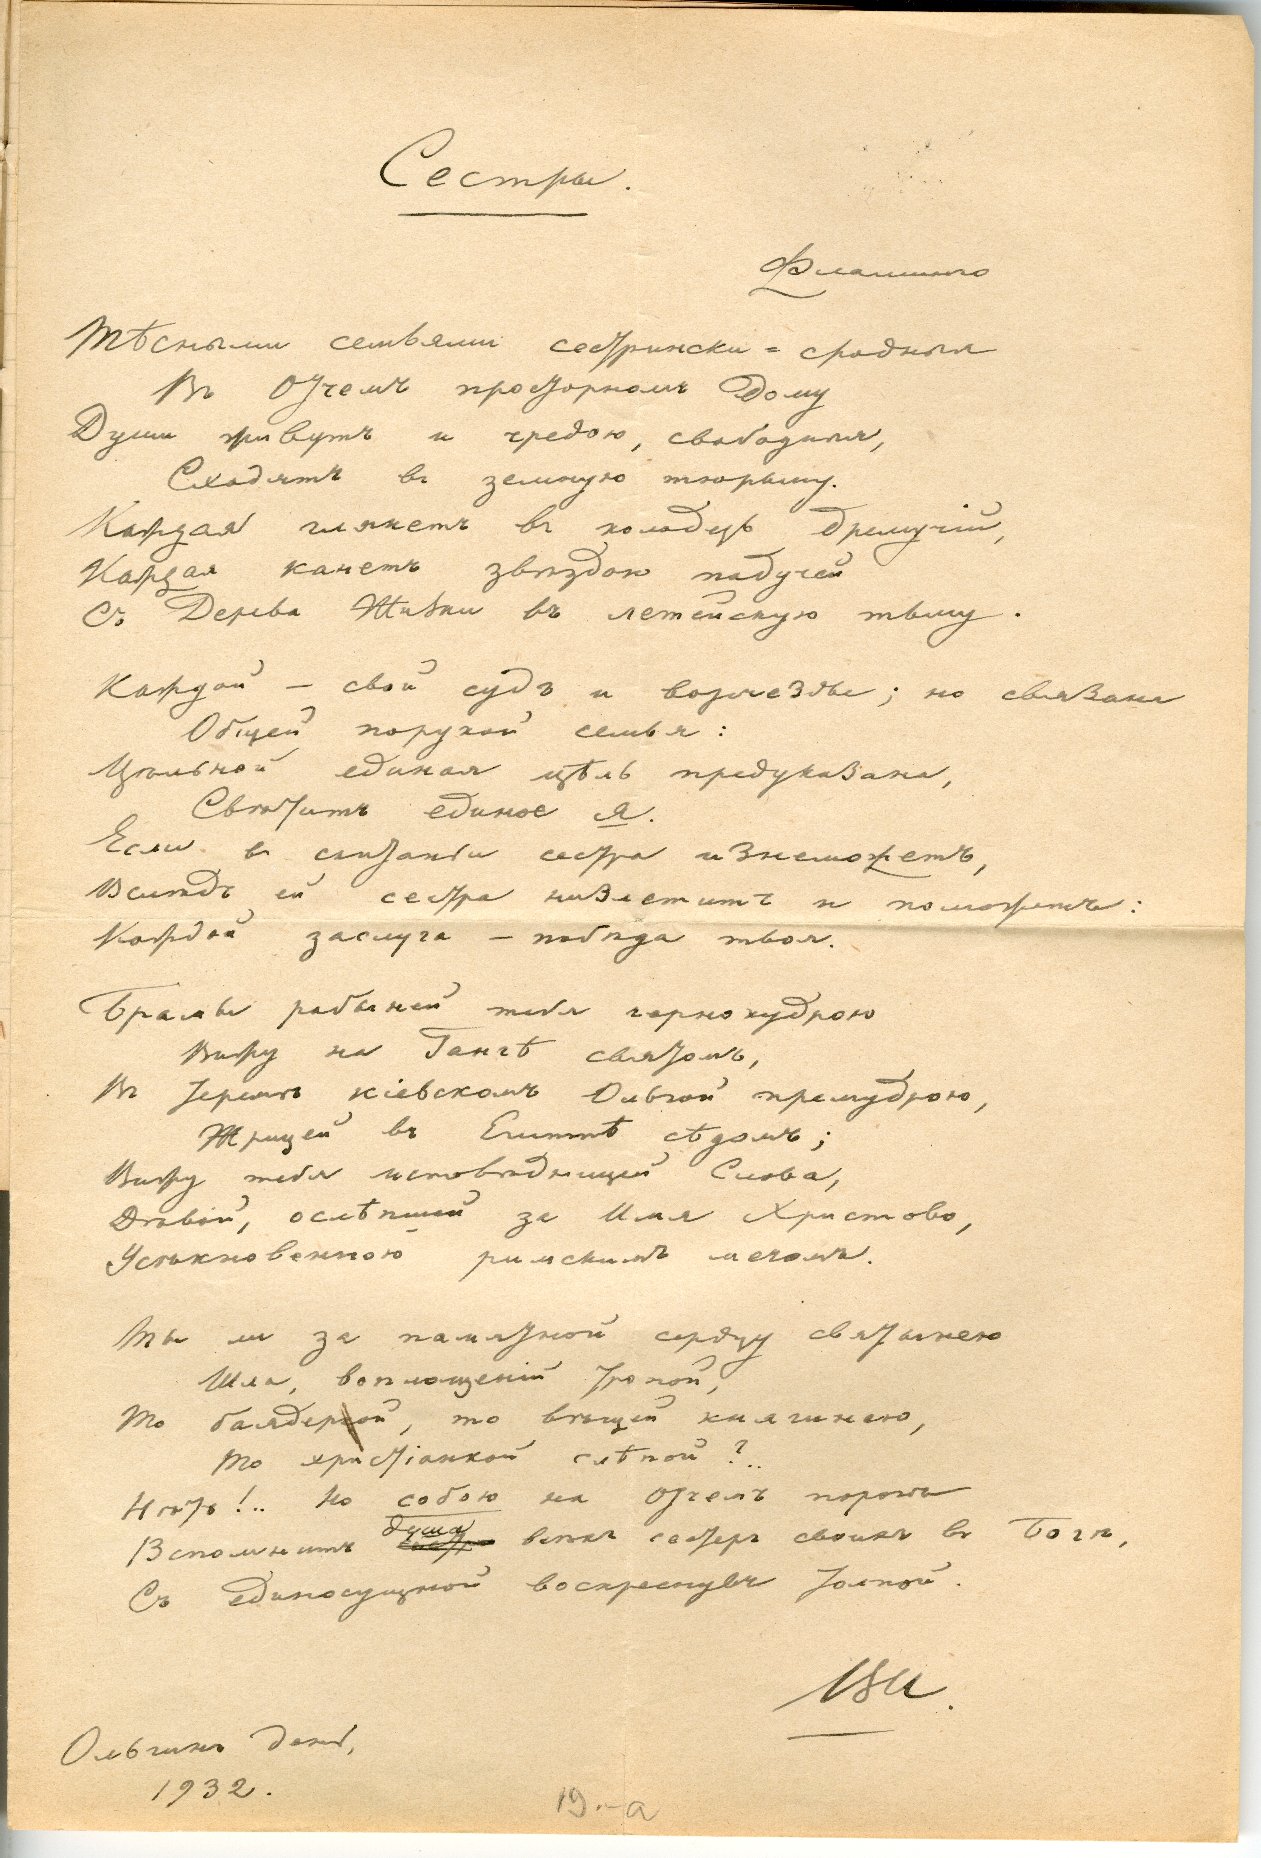 Сестры.
Фламинго
Тѣсными семьями сестрински-сродныя
Въ Отчемъ просторномъ Дому
Души живутъ и чредою, свободныя,
Сходятъ въ земную тюрьму.
Каждая глянетъ въ колодезь дремучій,
Каждая канетъ звѣздою падучей
Съ Дерева Жизни въ летейскую тьму.
Каждой – свой судъ и возмездье; но связана
Общей порукой семья:
Цѣльной единая цѣль предуказана,
Свѣтитъ единое я.
Если въ скитаньи сестра изнеможетъ,
Вслѣдъ ей сестра низлетитъ и поможетъ:
Каждой заслуга – побѣда твоя.
Брамы рабыней тебя чернокудрою
Вижу на Гангѣ святомъ,
Въ теремѣ кіевскомъ Ольгой премудрою,
Жрицей въ Египтѣ сѣдомъ;
Вижу тебя исповѣдницей Слова,
Дѣвой, ослѣпшей за Имя Христово,
Усѣкновенною римскимъ мечомъ.
Ты ли за памятной сердцу святынею
Шла, воплощеній тропой,
То баядеркой, то вѣщей княгинею,
То христіанкой слѣпой?..
Нѣтъ!.. Но собою на Отчемъ порогѣ
душа
Вспомнитъ всѣхъ сестеръ своихъ въ Богѣ,
Съ единосущной воскреснувъ толпой.
ВИ.
Ольгинъ день,
1932.
19.-а